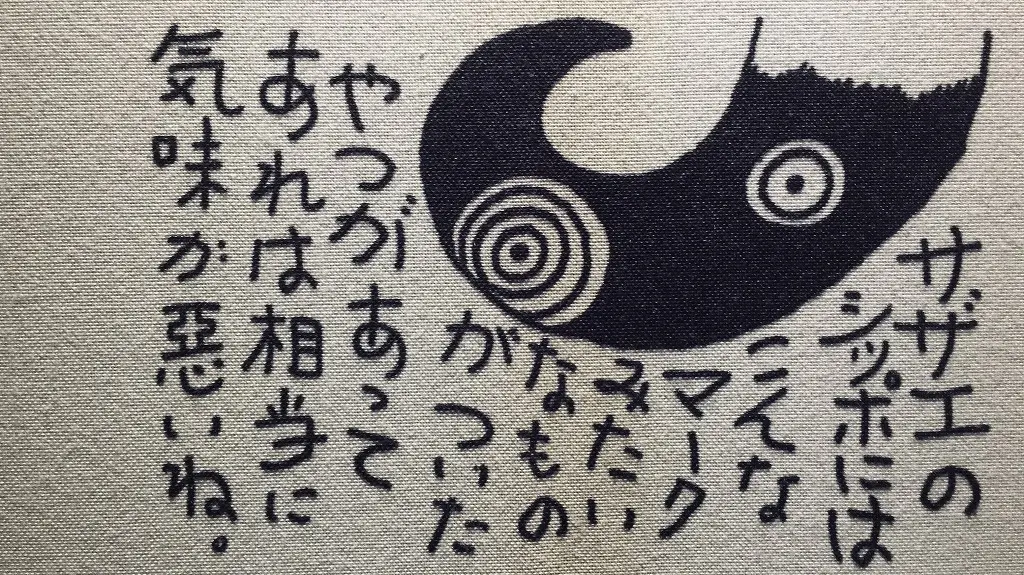 サザエの
シッポには
こんな
マーク
みたい
なもの
がついた
やつがあって
あれは相当に
気味が悪いね。